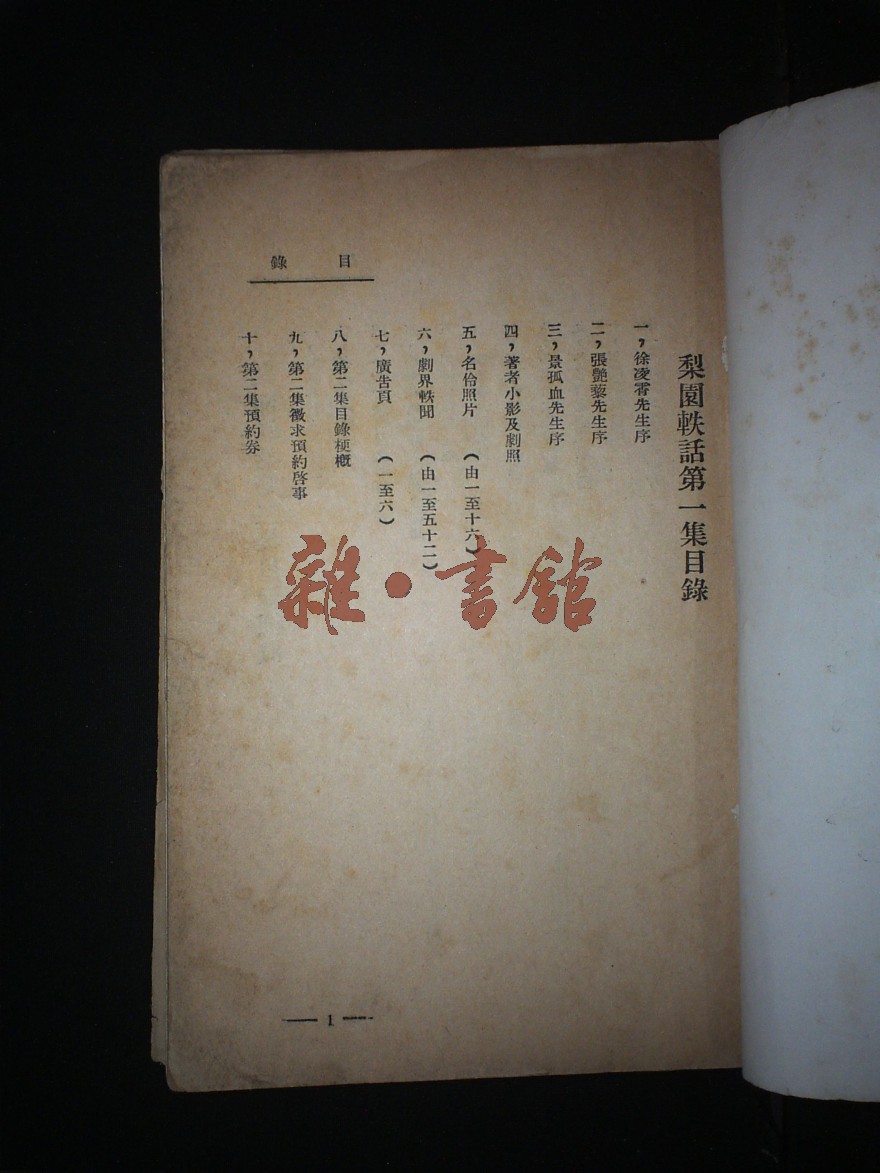 梨園軼話第一集目錄
一，徐凌霄先生序
二，張艷藜先生序
三，景孤血先生序
四，著者小影及劇照
五，名伶照片　（由一至十六）
六，劇界軼聞　（由一至五十二）
七，廣告頁　（一至六）
八，第二集目錄梗概
九，第二集徵求預約啓事
十，第二集預約券
目錄
1
雜·書館